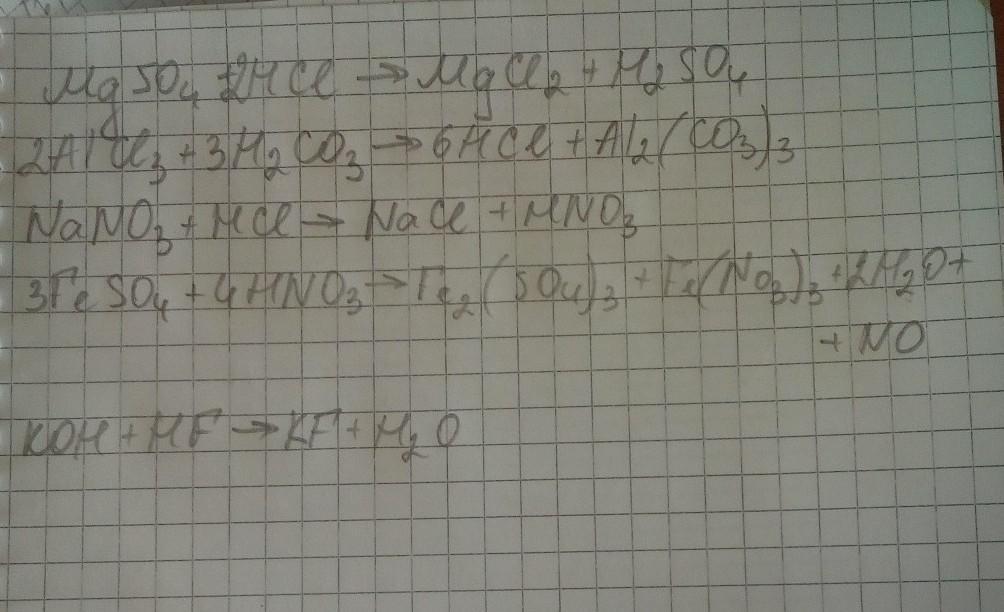 MgSO₄ + 2HCl → MgCl₂ + H₂SO₄
2AlCl₃ + 3H₂CO₃ → 6HCl + Al₂(CO₃)₃
NaNO₃ + HCl → NaCl + HNO₃
3FeSO₄ + 4HNO₃ → Fe₂(SO₄)₃ + Fe(NO₃)₃ + 2H₂O +
+ NO
KOH + HF → KF + H₂O